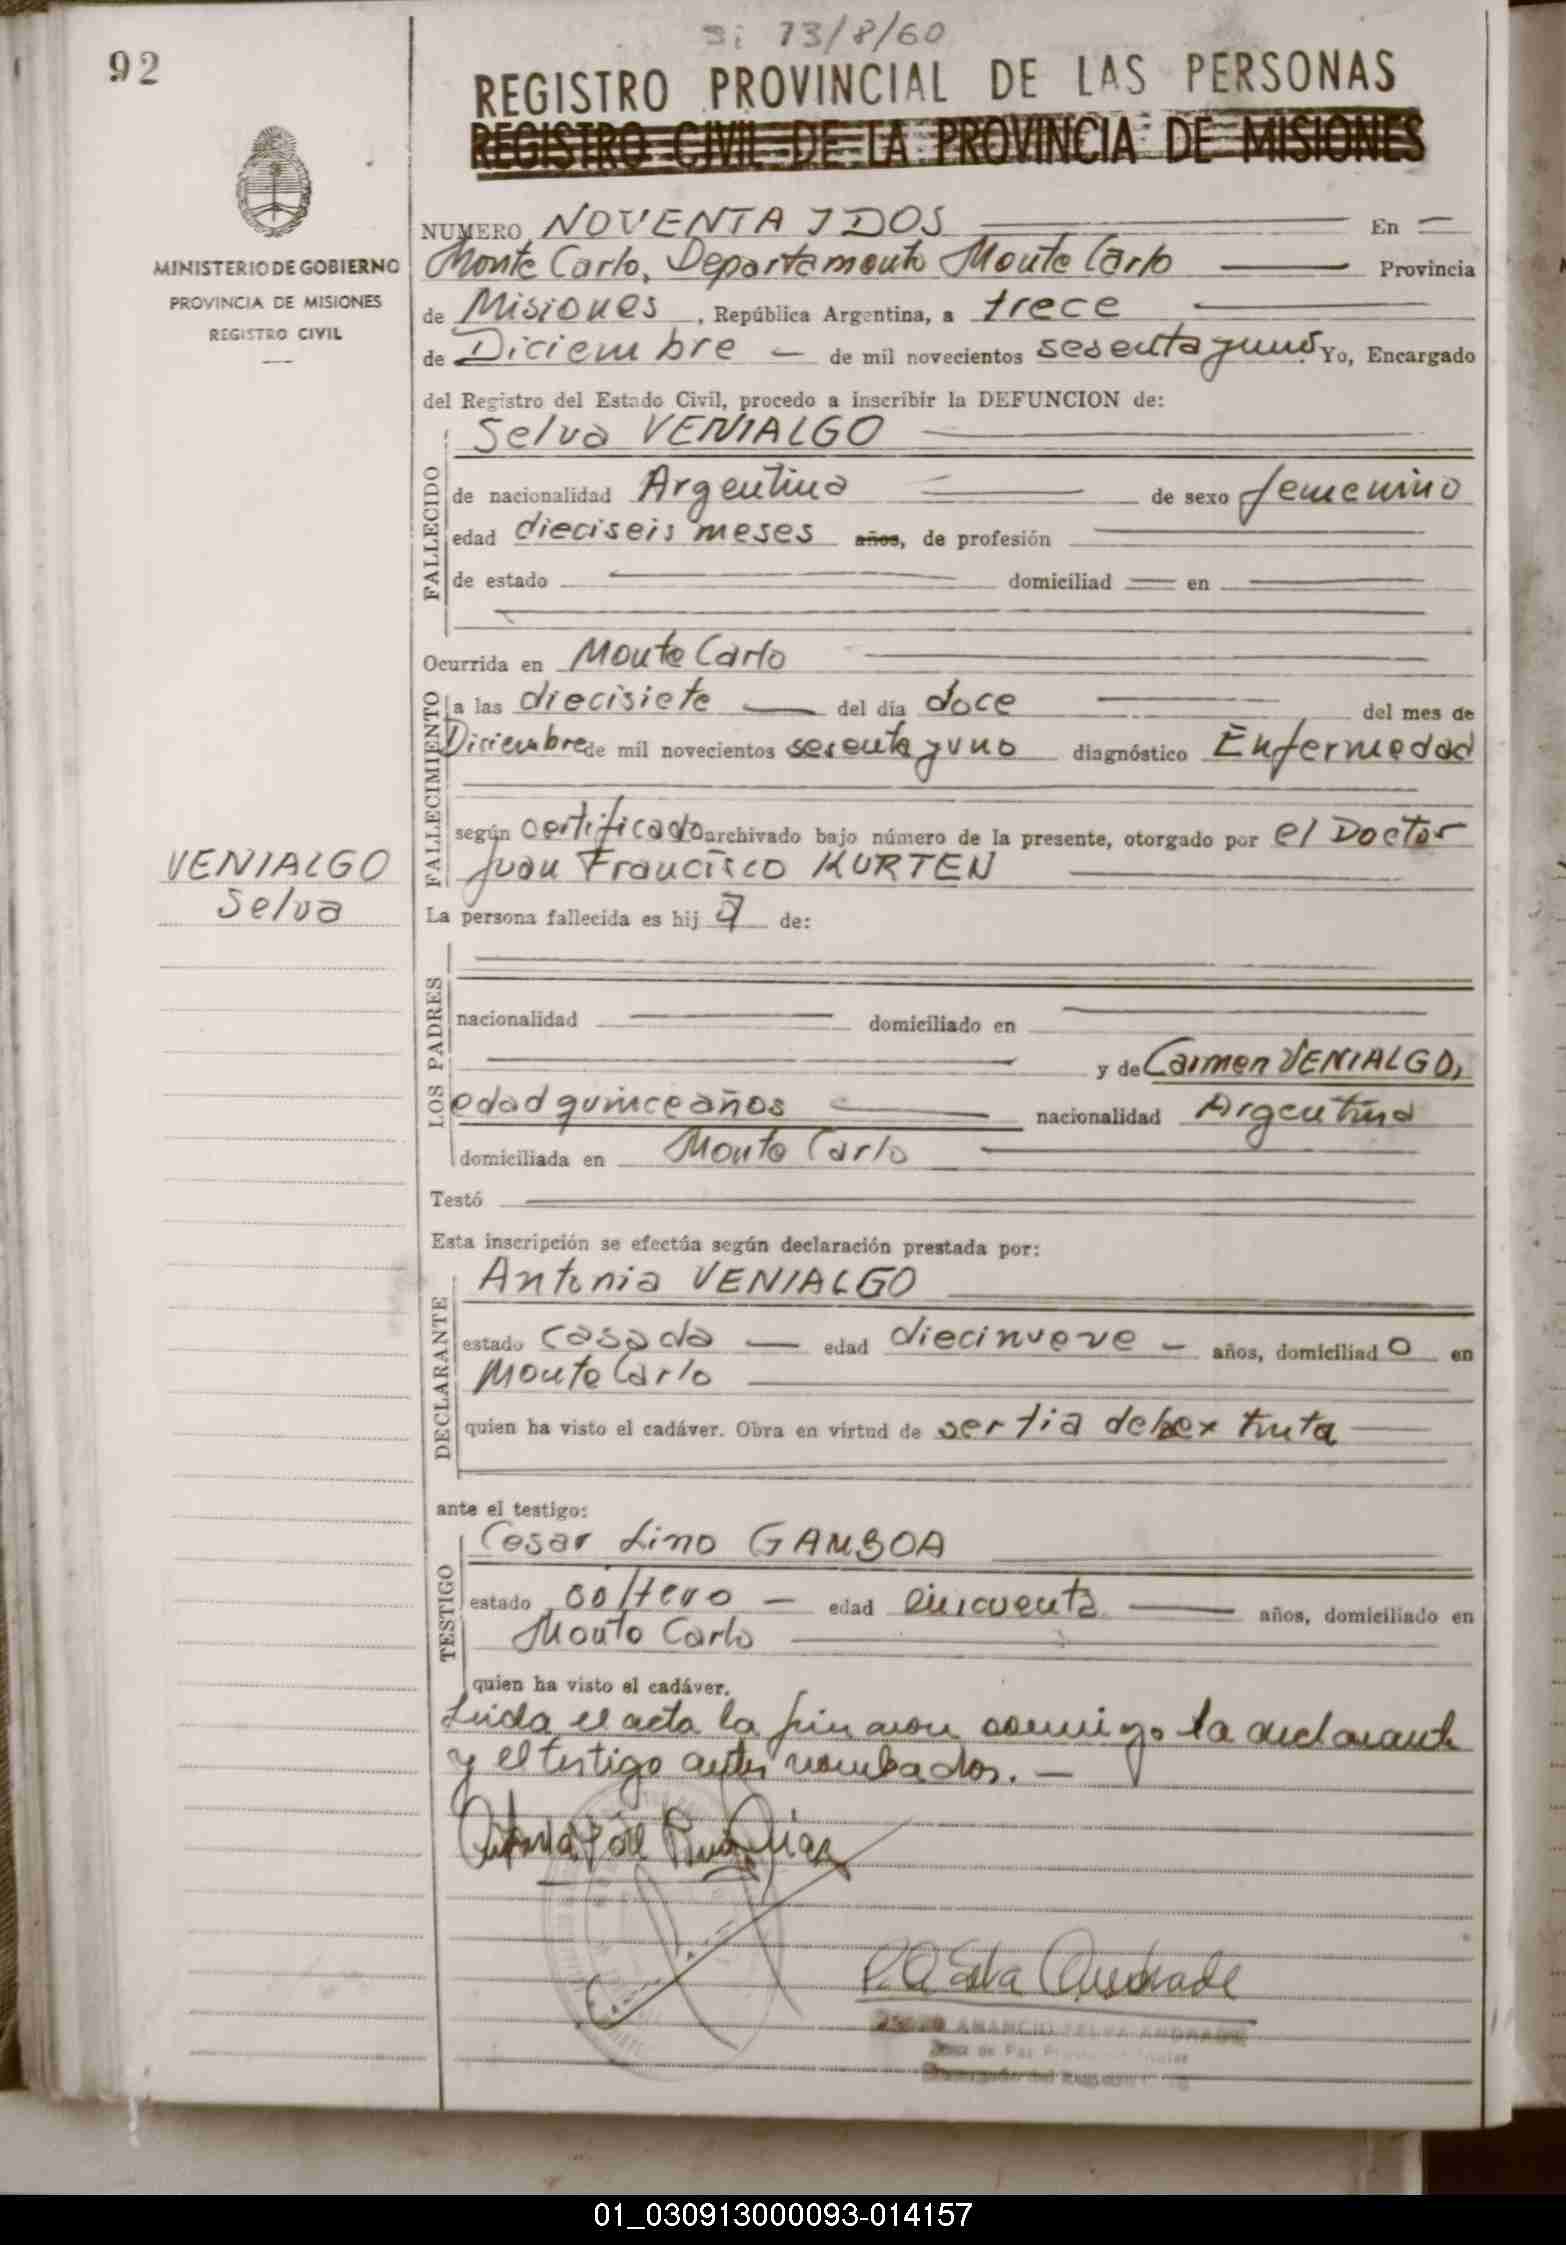 92
Si 13/8/60
REGISTRO PROVINCIAL DE LAS PERSONAS
REGISTRO CIVIL DE LA PROVINCIA DE MISIONES
MINISTERIO DE GOBIERNO
PROVINCIA DE MISIONES
REGISTRO CIVIL
NUMERO NOVENTA Y DOS En
Monte Carlo, Departamento Monte Carlo Provincia
de Misiones, República Argentina, a trece
de Diciembre de mil novecientos sesenta y uno Yo, Encargado
del Registro del Estado Civil, procedo a inscribir la DEFUNCION de:
FALLECIDO
Selva VENIALGO
de nacionalidad Argentina de sexo femenino
edad dieciseis meses años, de profesión
de estado domiciliad en
Ocurrida en Monte Carlo
FALLECIMIENTO
a las diecisiete del día doce del mes de
Diciembre de mil novecientos sesenta y uno diagnóstico Enfermedad
según certificado archivado bajo número de la presente, otorgado por el Doctor
Juan Francisco KURTEN
VENIALGO
Selva
La persona fallecida es hij a de:
LOS PADRES
nacionalidad domiciliado en
y de Carmen VENIALGO,
edad quince años nacionalidad Argentina
domiciliada en Monte Carlo
Testó
Esta inscripción se efectúa según declaración prestada por:
DECLARANTE
Antonia VENIALGO
estado casada edad diecinueve años, domiciliad o en
Monte Carlo
quien ha visto el cadáver. Obra en virtud de ser tia de la extinta
ante el testigo:
TESTIGO
Cesar Lino GAMBOA
estado soltero edad cincuenta años, domiciliado en
Monte Carlo
quien ha visto el cadáver.
Leida el acta la firmaron conmigo la declarante
y el testigo antes nombrados.
Andrade
AMANCIO SELVA ANDRADE
Juez de Paz
01_030913000093-014157